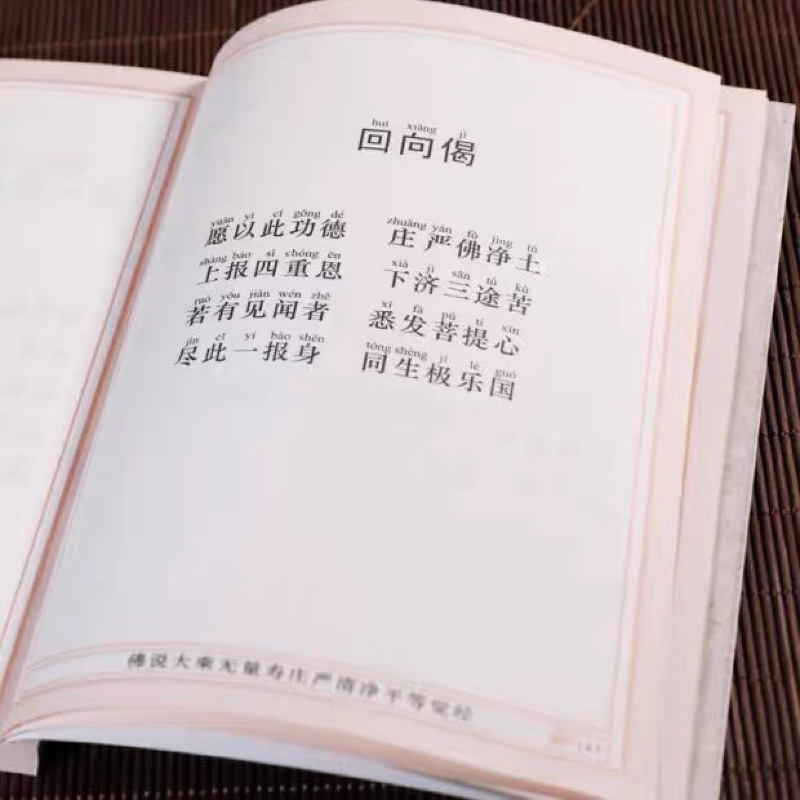 huí xiàng jì
回向偈
yuàn yǐ cǐ gōng dé zhuāng yán fó jìng tǔ
愿以此功德 庄严佛净土
shàng bào sì chóng ēn xià jì sān tú kǔ
上报四重恩 下济三途苦
ruò yǒu jiàn wén zhě xī fā pú tí xīn
若有见闻者 悉发菩提心
jìn cǐ yī bào shēn tóng shēng jí lè guó
尽此一报身 同生极乐国
佛说大乘无量寿庄严清净平等觉经